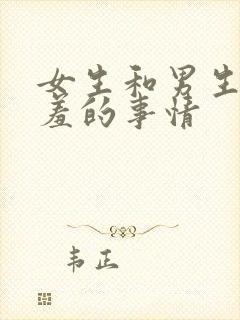 女生和男生
羞的事情
韦正